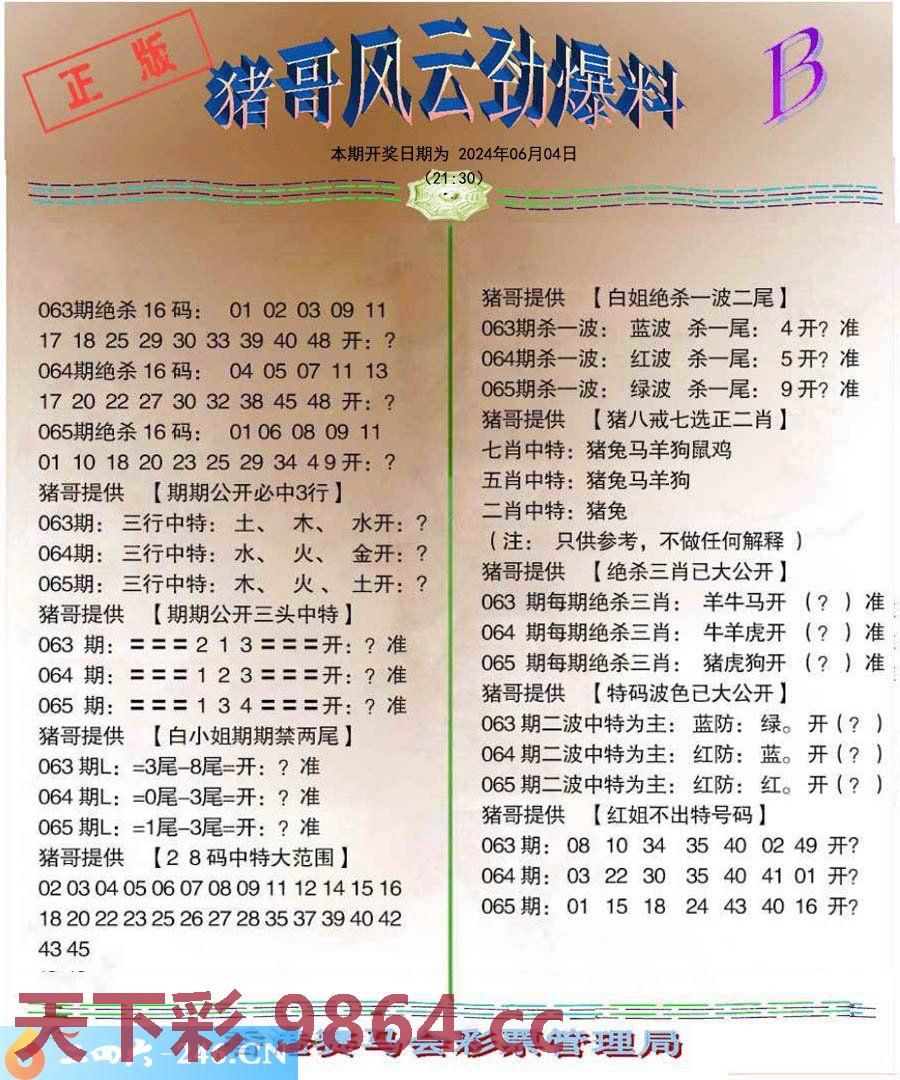 正版
猪哥风云劲爆料
B
本期开奖日期为 2024年06月04日
(21:30)
063期绝杀 16 码： 01 02 03 09 11
17 18 25 29 30 33 39 40 48 开：？
064期绝杀 16 码： 04 05 07 11 13
17 20 22 27 30 32 38 45 48 开：？
065期绝杀 16 码： 01 06 08 09 11
01 10 18 20 23 25 29 34 4 9 开：？
猪哥提供 【期期公开必中3行】
063期： 三行中特： 土、 木、 水开：？
064期： 三行中特： 水、 火、 金开：？
065期： 三行中特： 木、 火、 土开：？
猪哥提供 【期期公开三头中特】
063 期：＝＝＝2 1 3＝＝＝开：？准
064 期：＝＝＝1 2 3＝＝＝开：？准
065 期：＝＝＝1 3 4＝＝＝开：？准
猪哥提供 【白小姐期期禁两尾】
063 期L：=3尾–8尾=开：？准
064 期L：=0尾–3尾=开：？准
065 期L：=1尾–3尾=开：？准
猪哥提供 【2 8码中特大范围】
02 03 04 05 06 07 08 09 11 12 14 15 16
18 20 22 23 25 26 27 28 35 37 39 40 42
43 45
猪哥提供 【白姐绝杀一波二尾】
063期杀一波： 蓝波 杀一尾： 4 开？准
064期杀一波： 红波 杀一尾： 5 开？准
065期杀一波： 绿波 杀一尾： 9 开？准
猪哥提供 【猪八戒七选正二肖】
七肖中特：猪兔马羊狗鼠鸡
五肖中特：猪兔马羊狗
二肖中特：猪兔
（注： 只供参考，不做任何解释 ）
猪哥提供 【绝杀三肖已大公开】
063 期每期绝杀三肖： 羊牛马开 （？）准
064 期每期绝杀三肖： 牛羊虎开 （？）准
065 期每期绝杀三肖： 猪虎狗开 （？）准
猪哥提供 【特码波色已大公开】
063 期二波中特为主： 蓝防： 绿。 开（？）
064 期二波中特为主： 红防： 蓝。 开（？）
065 期二波中特为主： 红防： 红。 开（？）
猪哥提供 【红姐不出特号码】
063 期： 08 10 34 35 40 02 49 开？
064 期： 03 22 30 35 40 41 01 开？
065 期： 01 15 18 24 43 40 16 开？
天下彩 9864.cc
二四六-246.CN
赛马会彩票管理局